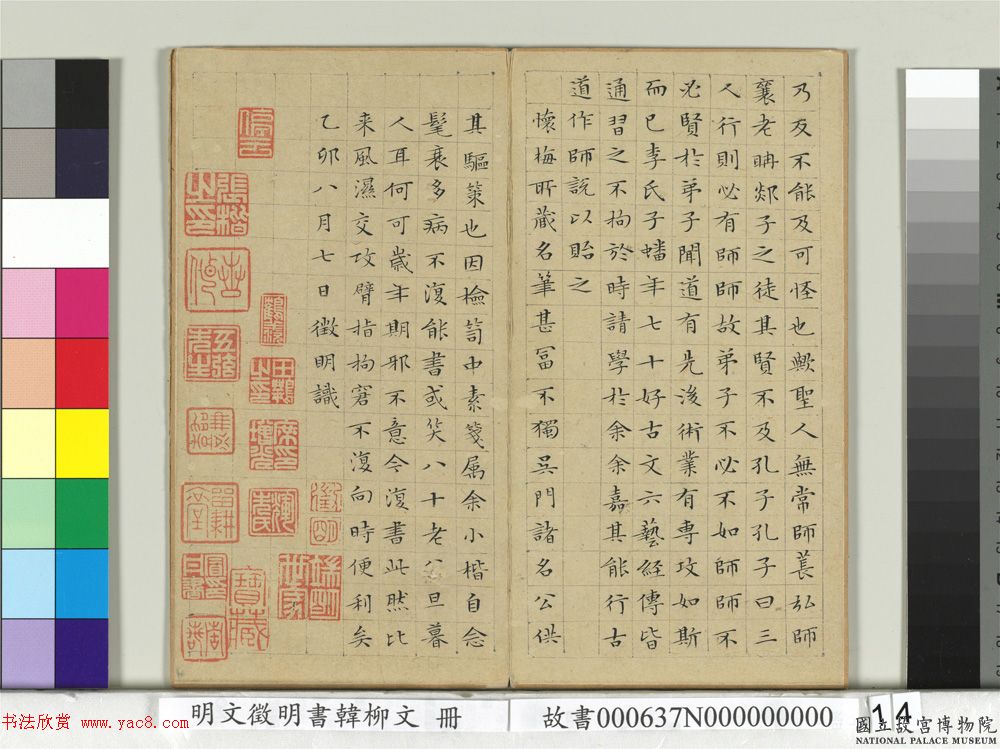 乃反不能及可怪也歟聖人無常師萇弘師
襄老聃郯子之徒其賢不及孔子孔子曰三
人行則必有師師故弟子不必不如師師不
必賢於弟子聞道有先後術業有專攻如斯
而已李氏子蟠年七十好古文六藝經傳皆
通習之不拘於時請學於余余嘉其能行古
道作師說以貽之
懷梅所藏名筆甚冨不獨吳門諸名公供
其驅策也因檢笥中素箋属余小楷自念
髦衰多病不復能書或笑八十老公旦暮
人耳何可歲年期邪不意今復書此然比
来風濕交攻臂指拘窘不復向時便利矣
乙卯八月七日徵明識
張楷之印
五弦先生
寶藏
明文徵明書韓柳文 冊
故書000637N000000000
14
國立故宮博物院
NATIONAL PALACE MUSEUM
书法欣赏 www.yac8.com